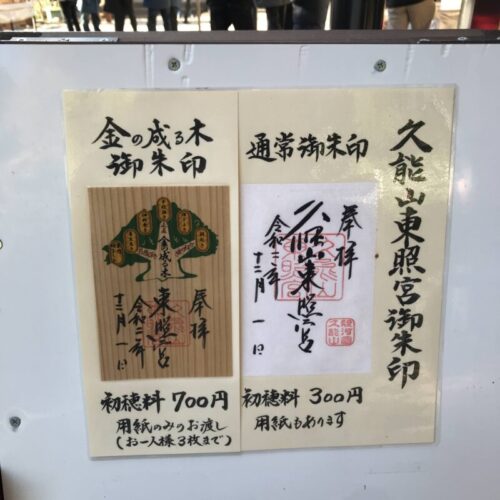 久能山東照宮御朱印
通常御朱印
奉拝
久能山東照宮
令和二年
十二月一日
初穂料 300円
用紙もあります
金の成る木
御朱印
金の成る木
奉拝
東照宮
令和二年
十二月一日
初穂料 700円
用紙のみのお渡し
(お一人様3枚まで)